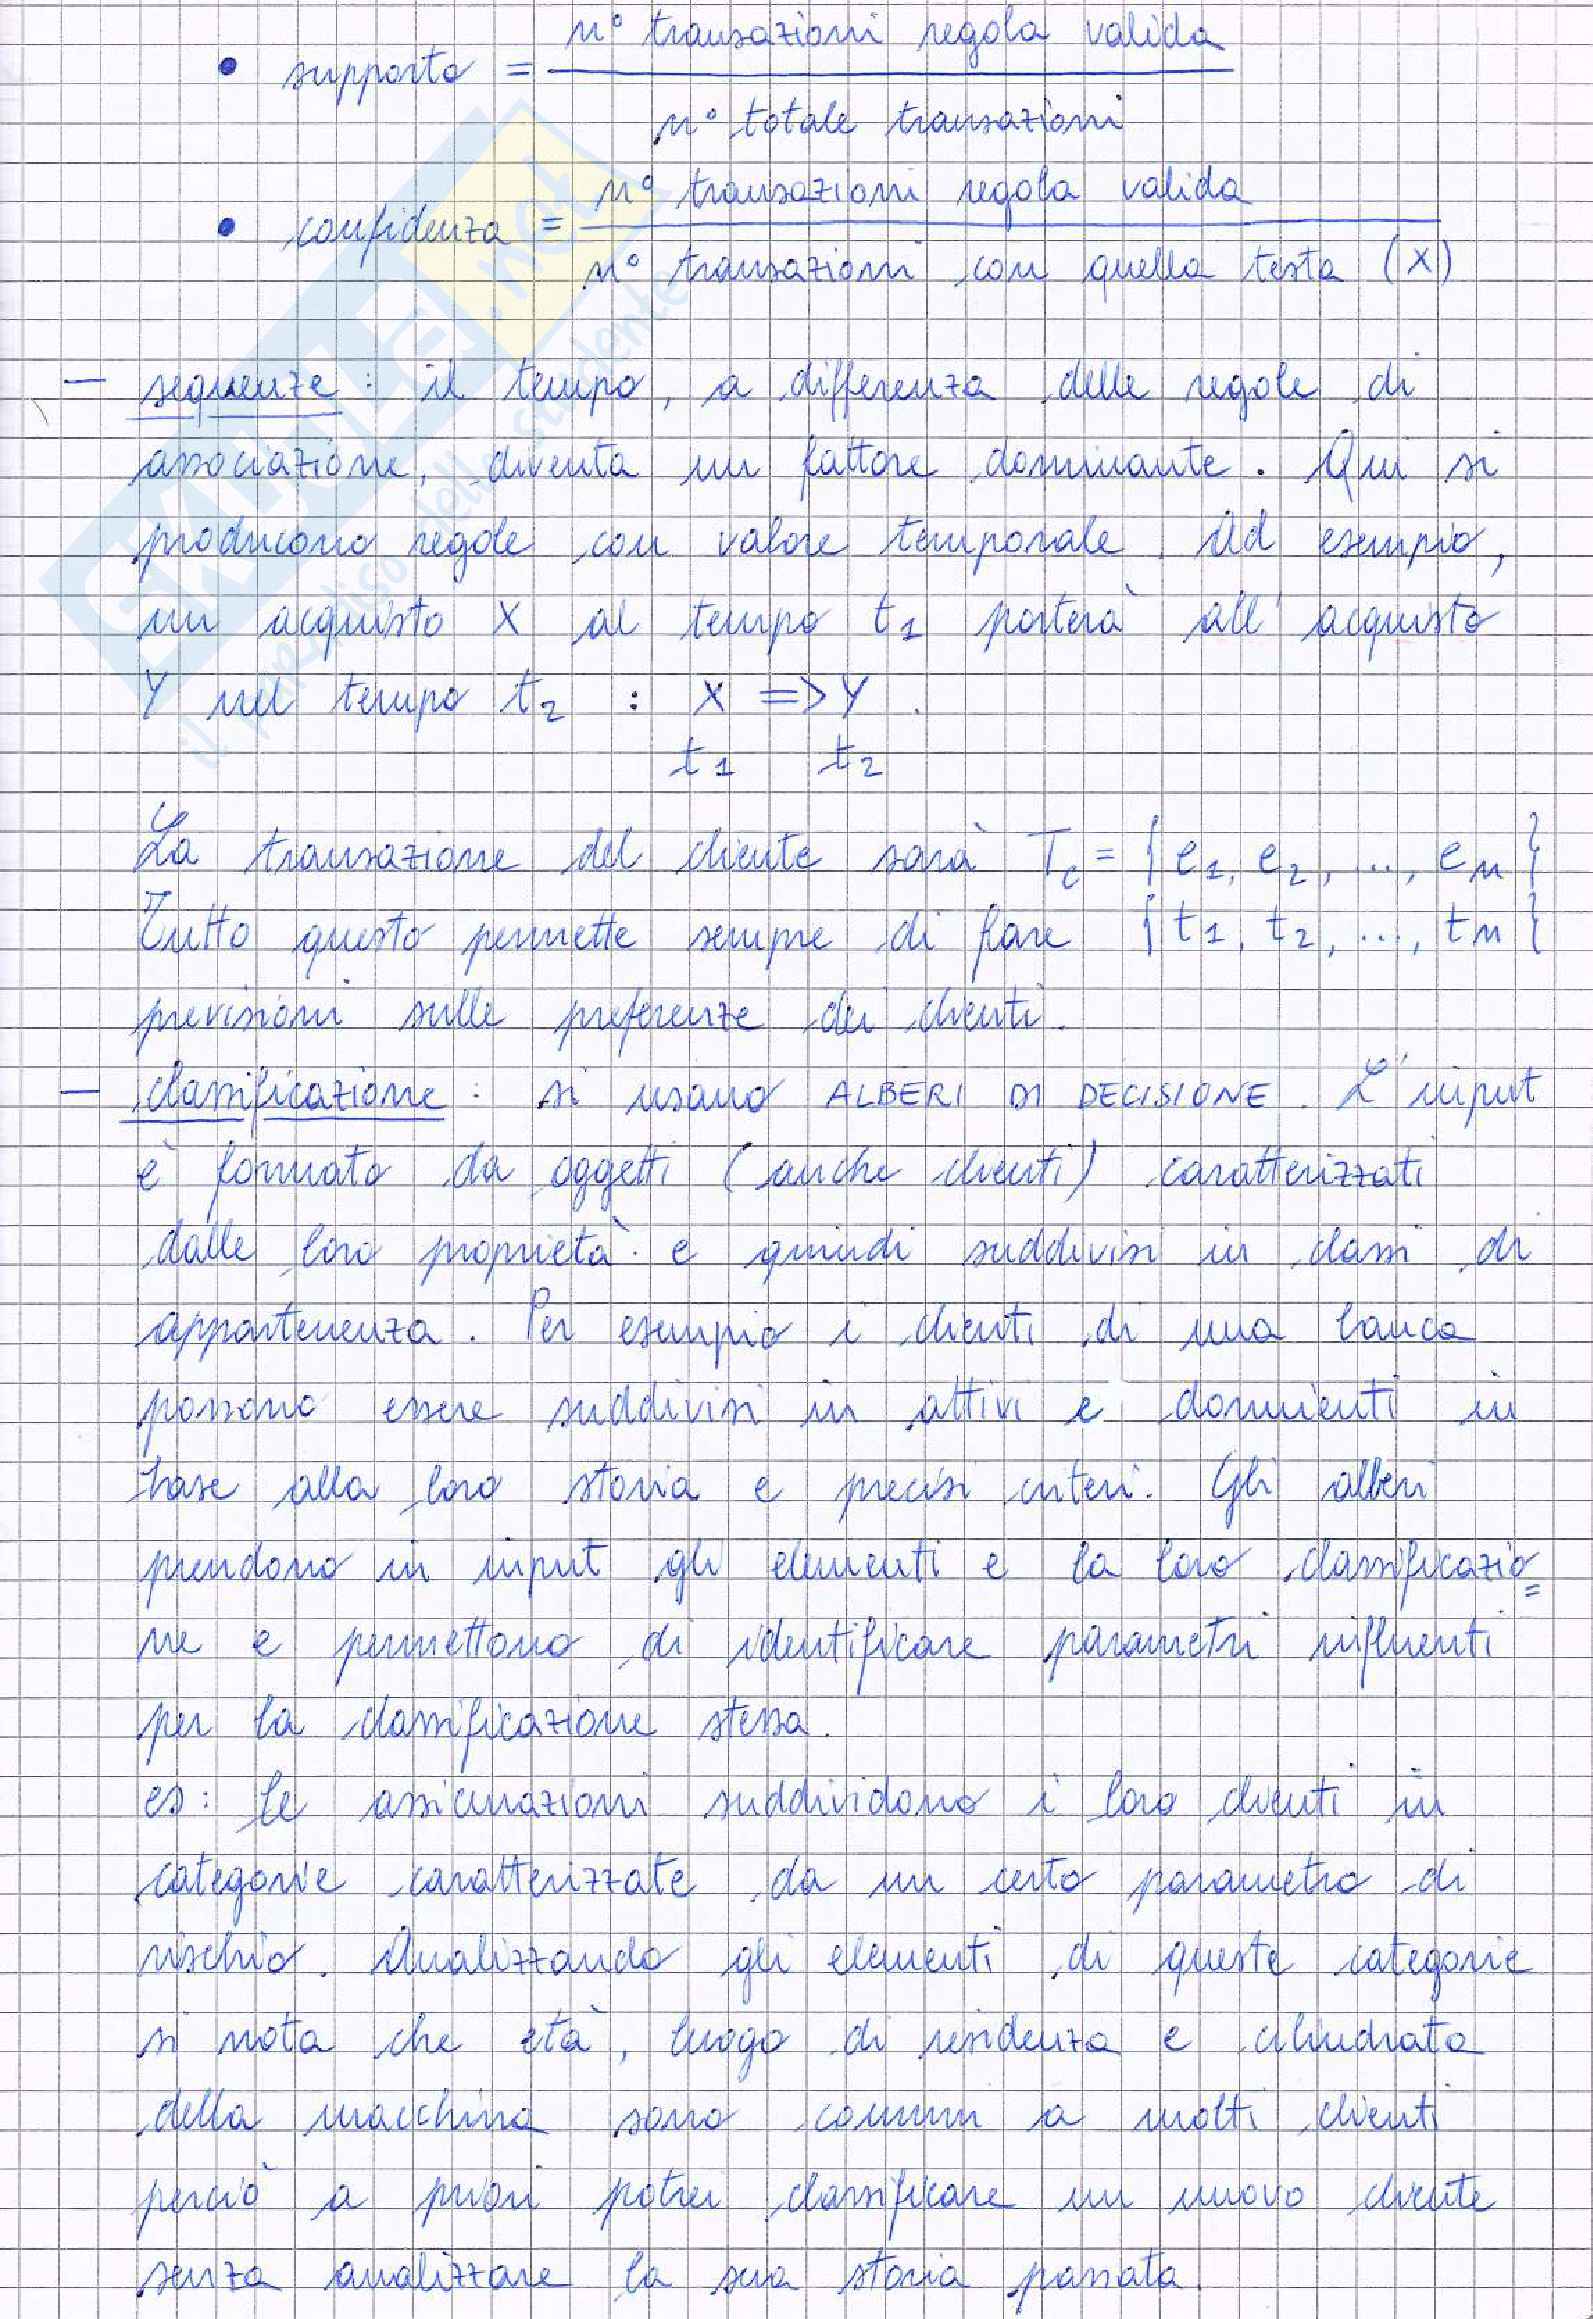 n° transazioni regola valida
• supporto =
n° totale transazioni
n° transazioni regola valida
• confidenza =
n° transazioni con quella testa (X)
— sequenze : il tempo, a differenza delle regole di
associazione, diventa un fattore dominante. Qui si
producono regole con valore temporale. Ad esempio,
un acquisto X al tempo t1 porterà all' acquisto
Y nel tempo t2 : X => Y .
t1 t2
La transazione del cliente sarà Tc = { e1, e2, ..., en }
Tutto questo permette sempre di fare { t1, t2, ..., tn }
previsioni sulle preferenze dei clienti.
— classificazione : si usano ALBERI DI DECISIONE. L' input
è formato da oggetti (anche clienti) caratterizzati
dalle loro proprietà e quindi suddivisi in classi di
appartenenza. Per esempio i clienti di una banca
possono essere suddivisi in attivi e dormienti in
base alla loro storia e precisi criteri. Gli alberi
prendono in input gli elementi e la loro classificazio=
ne e permettono di identificare parametri influenti
per la classificazione stessa.
es: le assicurazioni suddividono i loro clienti in
categorie caratterizzate da un certo parametro di
rischio. Analizzando gli elementi di queste categorie
si nota che età, luogo di residenza e cilindrata
della macchina sono comuni a molti clienti
perciò a priori potrei classificare un nuovo cliente
senza analizzare la sua storia passata.
SKUOLA.net
il paradiso dello studente